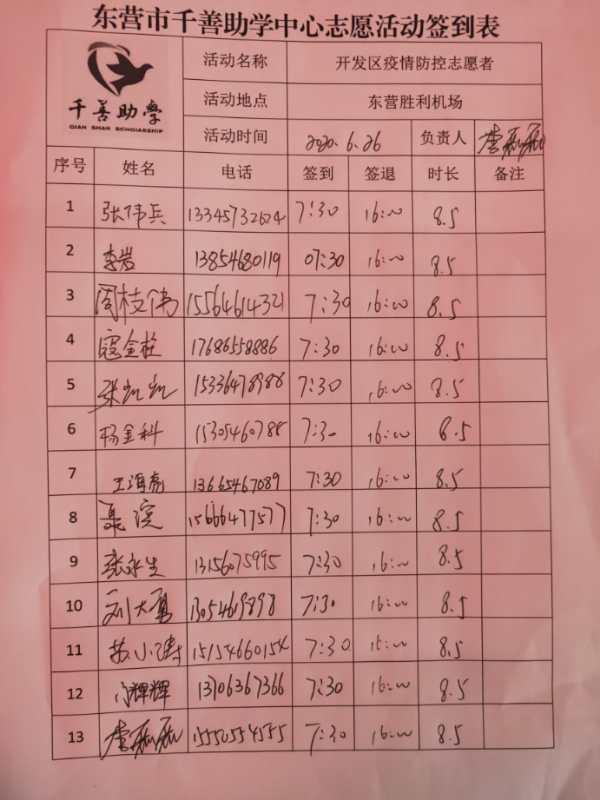 东营市千善助学中心志愿活动签到表
千善助学
QIAN SHAN SCHOLARSHIP
活动名称 开发区疫情防控志愿者
活动地点 东营胜利机场
活动时间 2020.6.26 负责人
序号 姓名 电话 签到 签退 时长 备注
1 张伟兵 13345732604 7:30 16:00 8.5
2 李岩 13854680119 07:30 16:00 8.5
3 周枝伟 15564614321 7:30 16:00 8.5
4 寇金柱 17686558886 7:30 16:00 8.5
5 张凯凯 15336478988 7:30 16:00 8.5
6 杨金科 15305460788 7:30 16:00 8.5
7 王海亮 13665467089 7:30 16:00 8.5
8 聂滨 15666477577 7:30 16:00 8.5
9 张永生 13156075995 7:30 16:00 8.5
10 刘大勇 13054619898 7:30 16:00 8.5
11 苏小涛 15154660154 7:30 15:00 8.5
12 闫辉辉 13706367366 7:30 16:00 8.5
13 15550554555 7:30 16:00 8.5